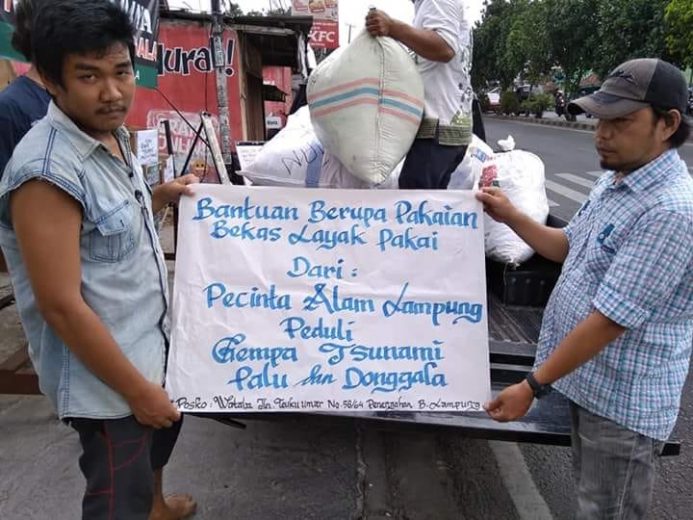 Bantuan Berupa Pakaian
Bekas Layak Pakai
Dari :
Pecinta Alam Lampung
Peduli
Gempa Tsunami
Palu dan Donggala
Posko : Watala Jln. Teuku Umar No. 58/64 Penengahan B. Lampung
KFC